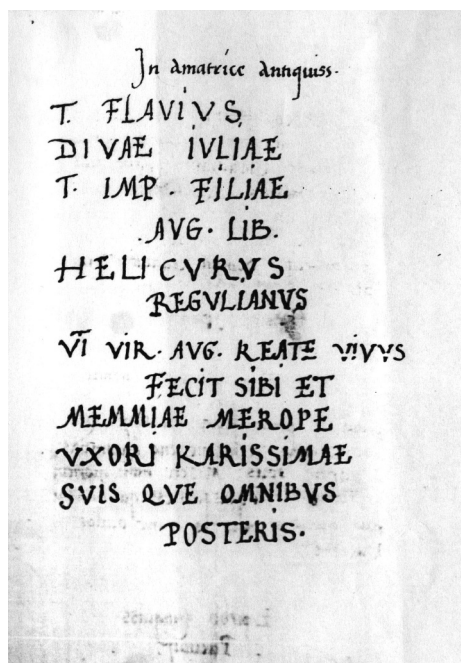 In amatrice antiquiss.
T. FLAVIVS
DIVAE IVLIAE
T. IMP. FILIAE
AVG. LIB.
HELICVRVS
REGVLIANVS
VI VIR. AVG. REATE VIVVS
FECIT SIBI ET
MEMMIAE MEROPE
VXORI KARISSIMAE
SVIS QVE OMNIBVS
POSTERIS.